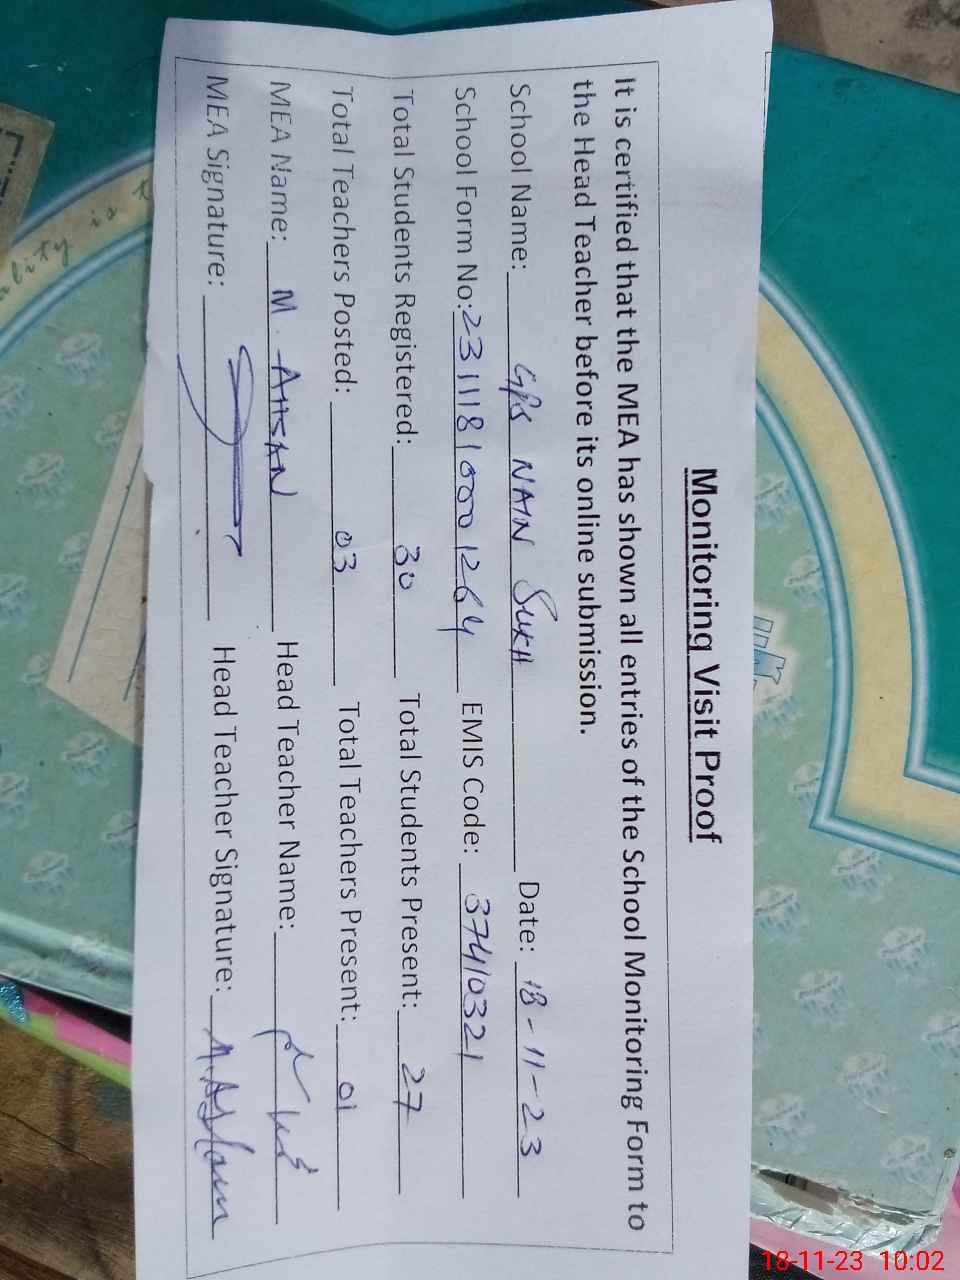 Monitoring Visit Proof
It is certified that the MEA has shown all entries of the School Monitoring Form to
the Head Teacher before its online submission.
School Name: GPS NAIN SUKH Date: 18-11-23
School Form No: 231118100001264 EMIS Code: 37410321
Total Students Registered: 30 Total Students Present: 27
Total Teachers Posted: 03 Total Teachers Present: 01
MEA Name: M. AHSAN Head Teacher Name:
MEA Signature: Head Teacher Signature: M. Aslam
18-11-23 10:02